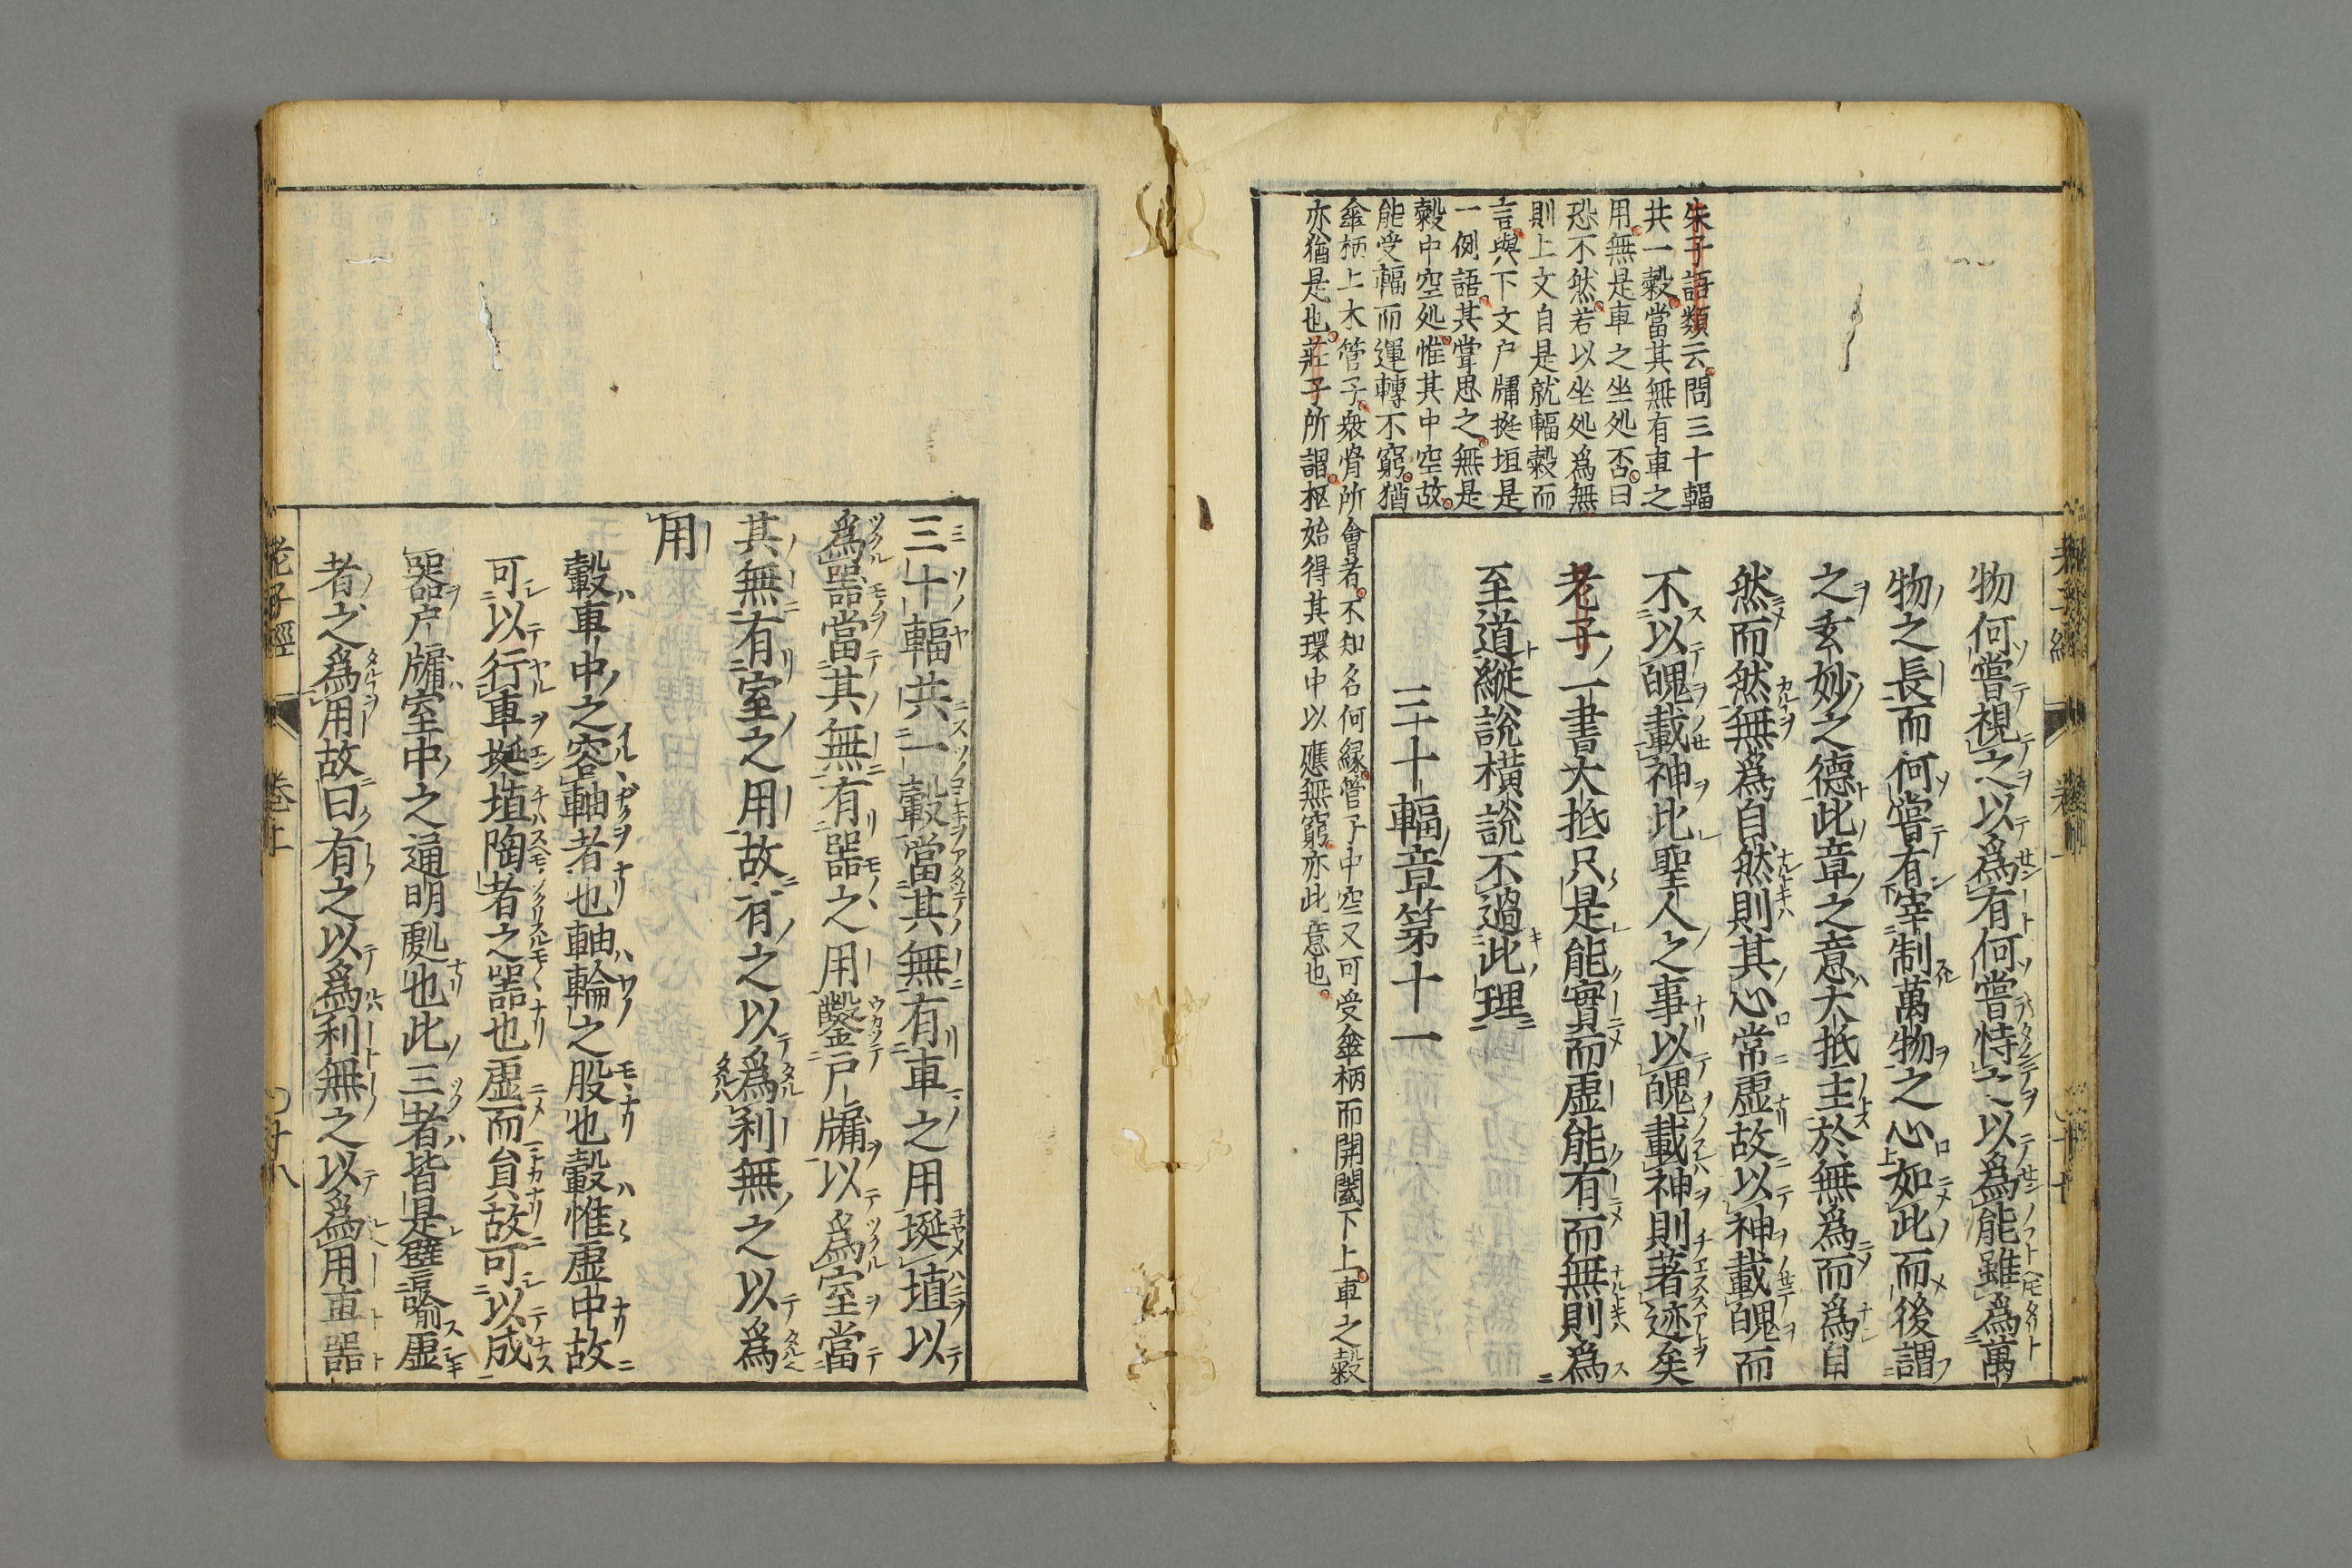 朱子語類云問三十輻
共一轂當其無有車之
用無是車之坐処否曰
恐不然若以坐処爲無
則上文自是就輻轂而
言與下文户牖埏埴是
一例語其嘗思之無是
轂中空処惟其中空故
能受輻而運轉不窮猶
傘柄上木管子衆骨所會者不知名何縁管子中空又可受傘柄而開闔下上車之轂
亦猶是也莊子所謂枢始得其環中以應無窮亦此意也
物何嘗視之以爲有何嘗恃之以爲能雖爲萬
物之長而何嘗有宰制萬物之心如此而後謂
之玄妙之德此章之意大抵主於無爲而爲自
然而然無爲自然則其心常虛故以神載魄而
不以魄載神比聖人之事以魄載神則著迹矣
老子一書大抵只是能實而虛能有而無則爲
至道縱說橫說不過此理
三十輻章第十一
三十輻共一轂當其無有車之用埏埴以
爲器當其無有器之用鑿戸牖以爲室當
其無有室之用故有之以爲利無之以爲
用
轂車中之容軸者也軸輪之股也轂惟虛中故
可以行車埏埴陶者之器也虛而員故可以成
器户牖室中之通明處也此三者皆是譬喻虛
者之爲用故曰有之以爲利無之以爲用車器
老子經 卷上 〇十八